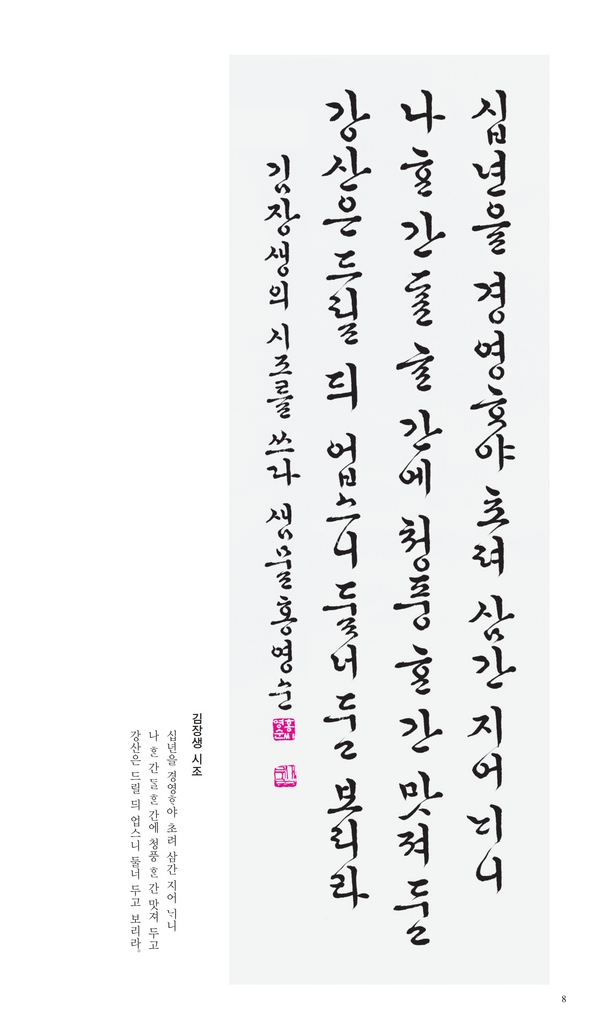 십년을 경영ᄒᆞ야 초려 삼간 지어 ᄂᆡ니
나 ᄒᆞᆫ 간 ᄃᆞᆯ ᄒᆞᆫ 간에 청풍 ᄒᆞᆫ 간 맛져 두고
강산은 드릴 듸 업스니 둘너 두고 보리라
김장생의 시조를 쓰다 샘물 홍영순
김장생 시조
십년을 경영ᄒᆞ야 초려 삼간 지어 ᄂᆡ니
나 ᄒᆞᆫ 간 ᄃᆞᆯ ᄒᆞᆫ 간에 청풍 ᄒᆞᆫ 간 맛져 두고
강산은 드릴 듸 업스니 둘너 두고 보리라.
8